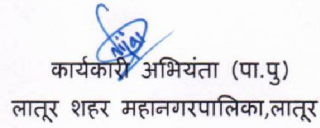 कार्यकारी अभियंता (पा.पु)
लातूर शहर महानगरपालिका,लातूर